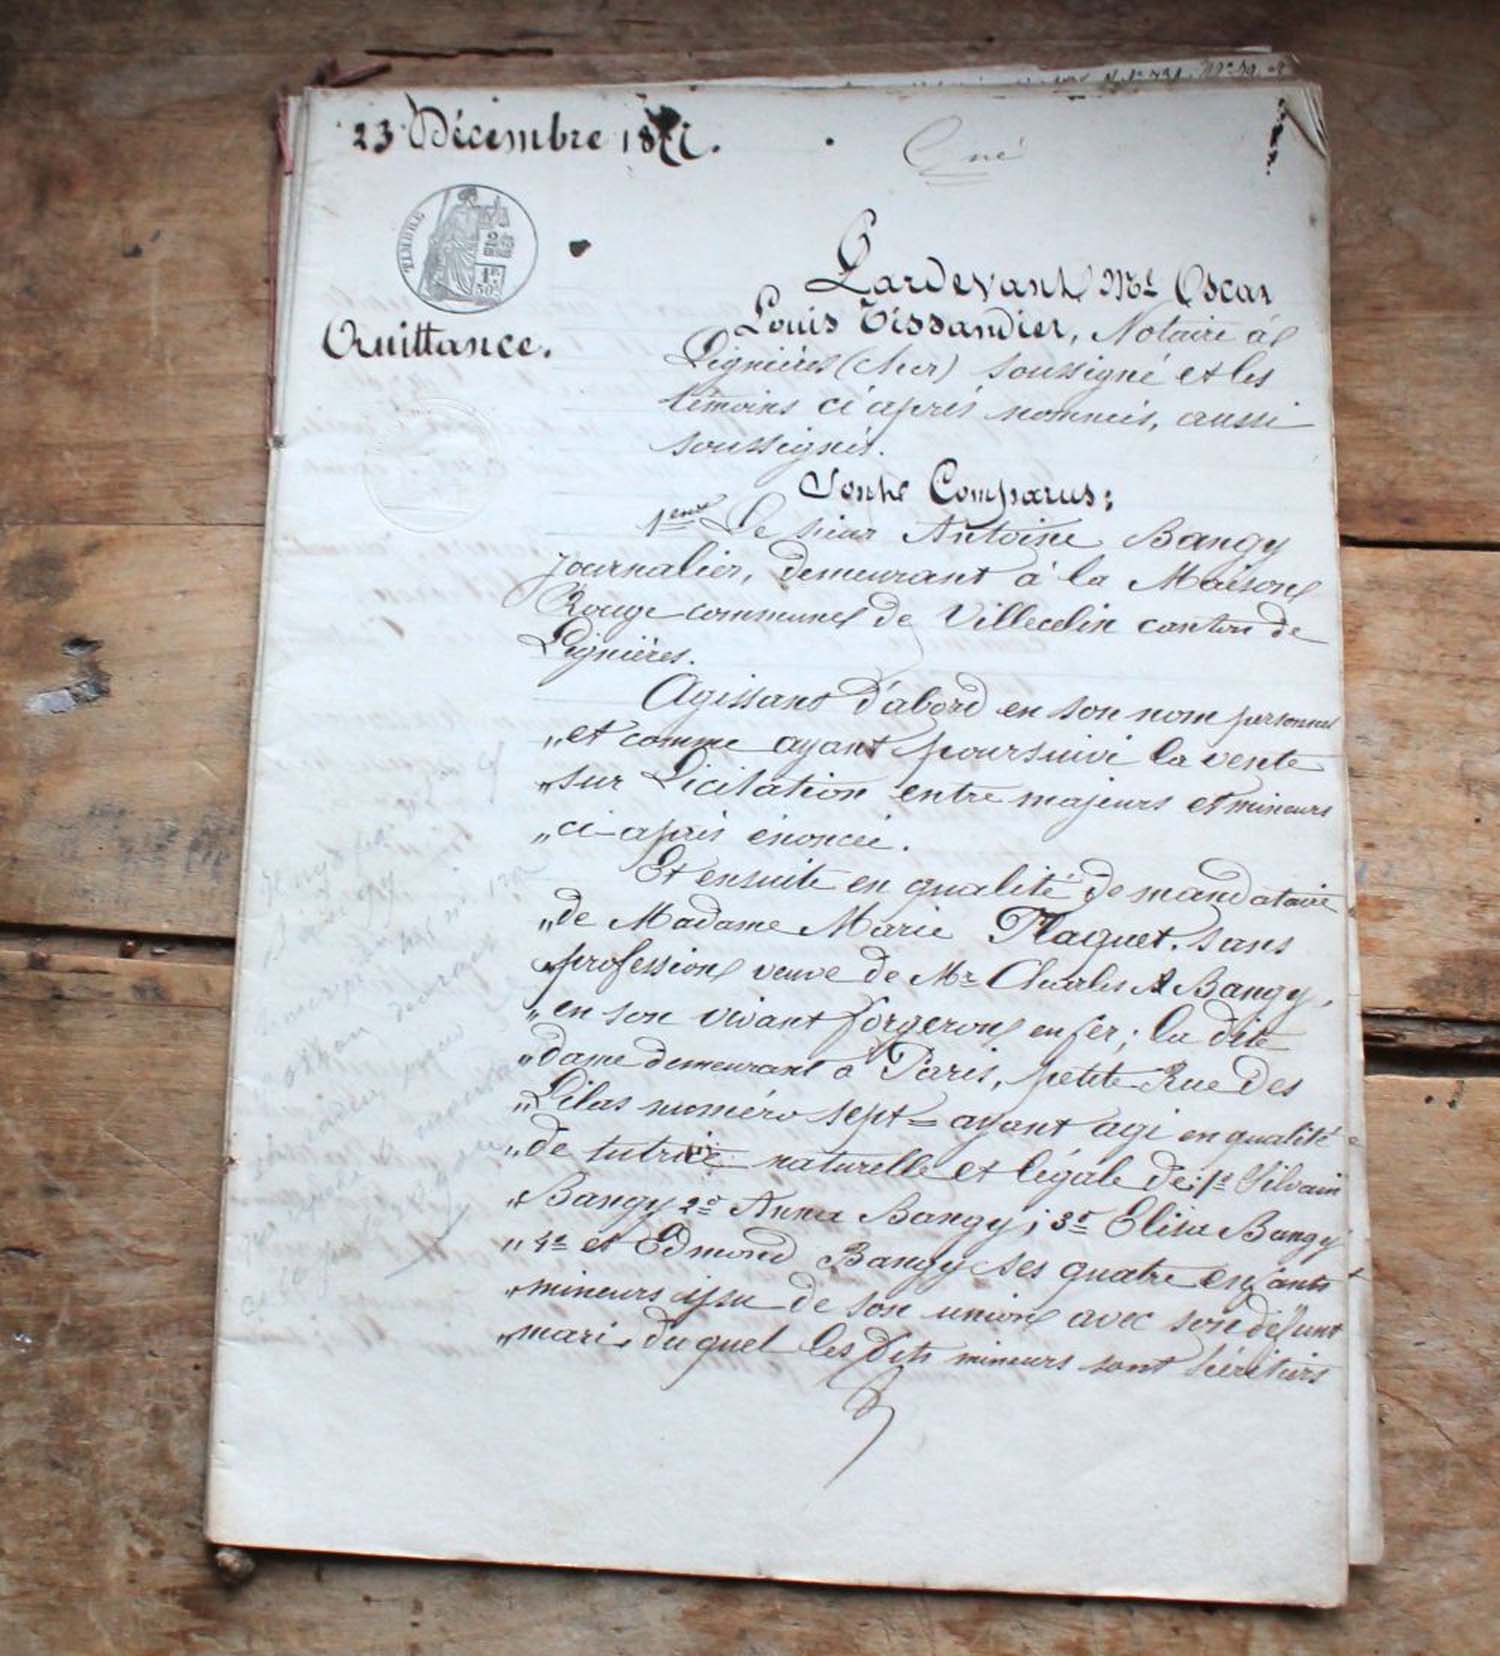 23 Décembre 18
Cné
TIMBRE
2
1
50
Quittance.
Pardevant Me Oscar
Louis Tissandier, Notaire à
Lignières (Cher) soussigné et les
témoins ci après nommés, aussi
soussignés.
Sont Comparus:
1ent Le sieur Antoine Bangy
journalier, demeurant à la Maison
Rouge commune de Villecelin canton de
Lignières.
Agissant d'abord en son nom personnel
„ et comme ayant poursuivi la vente
„ sur Licitation entre majeurs et mineurs
„ ci-après énoncée.
Et ensuite en qualité de mandataire
„ de Madame Marie Plaquet, sans
„ profession veuve de Mr Charles Bangy,
„ en son vivant forgeron en fer; la dite
„ dame demeurant à Paris, petite Rue des
„ Lilas numéro sept = ayant agi en qualité
„ de tutrice naturelle et légale de: 1o Silvain
„ Bangy 2o Anna Bangy; 3o Elisa Bangy
„ 4o et Edmond Bangy ses quatre enfants
„ mineurs issu de son union avec son défunt
„ mari, du quel les dits mineurs sont héritiers